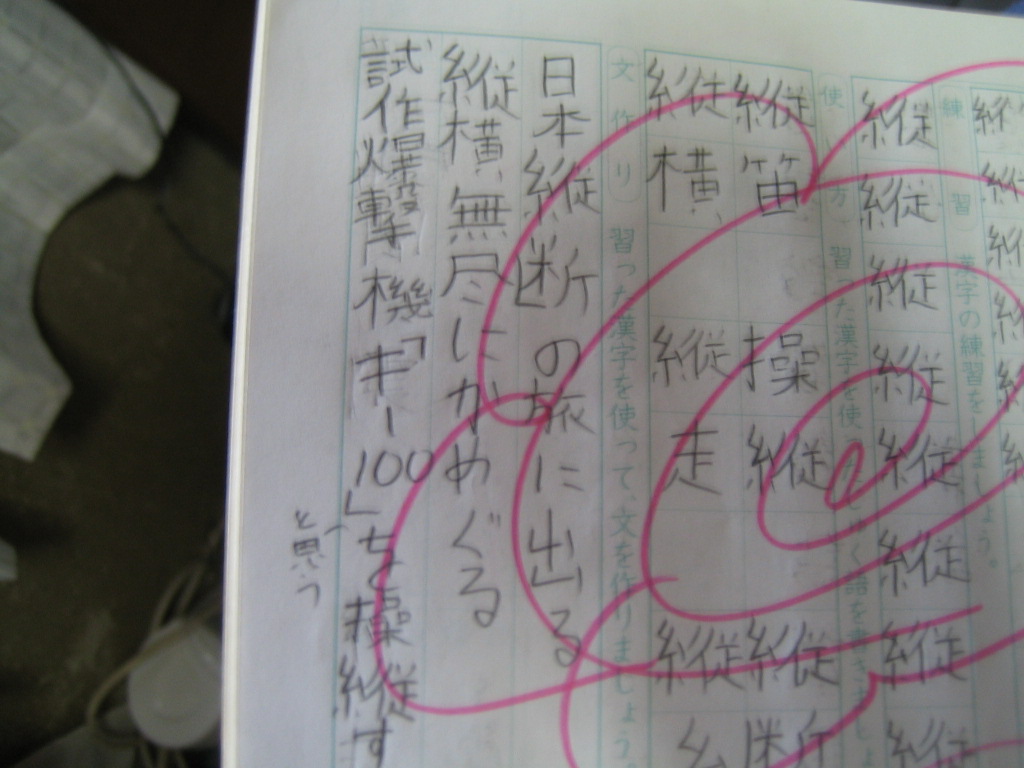 練習 漢字の練習をしましょう。
縦縦縦縦縦縦縦縦
使い方 習った漢字を使った
縦笛 操縦 縦断
縦横 縦走 縦
文作り 習った漢字を使って、文を作りましょう。
日本縦断の旅に出る
縦横無尽にかめぐる
試作爆撃機「キー100」を操縦す
と思う